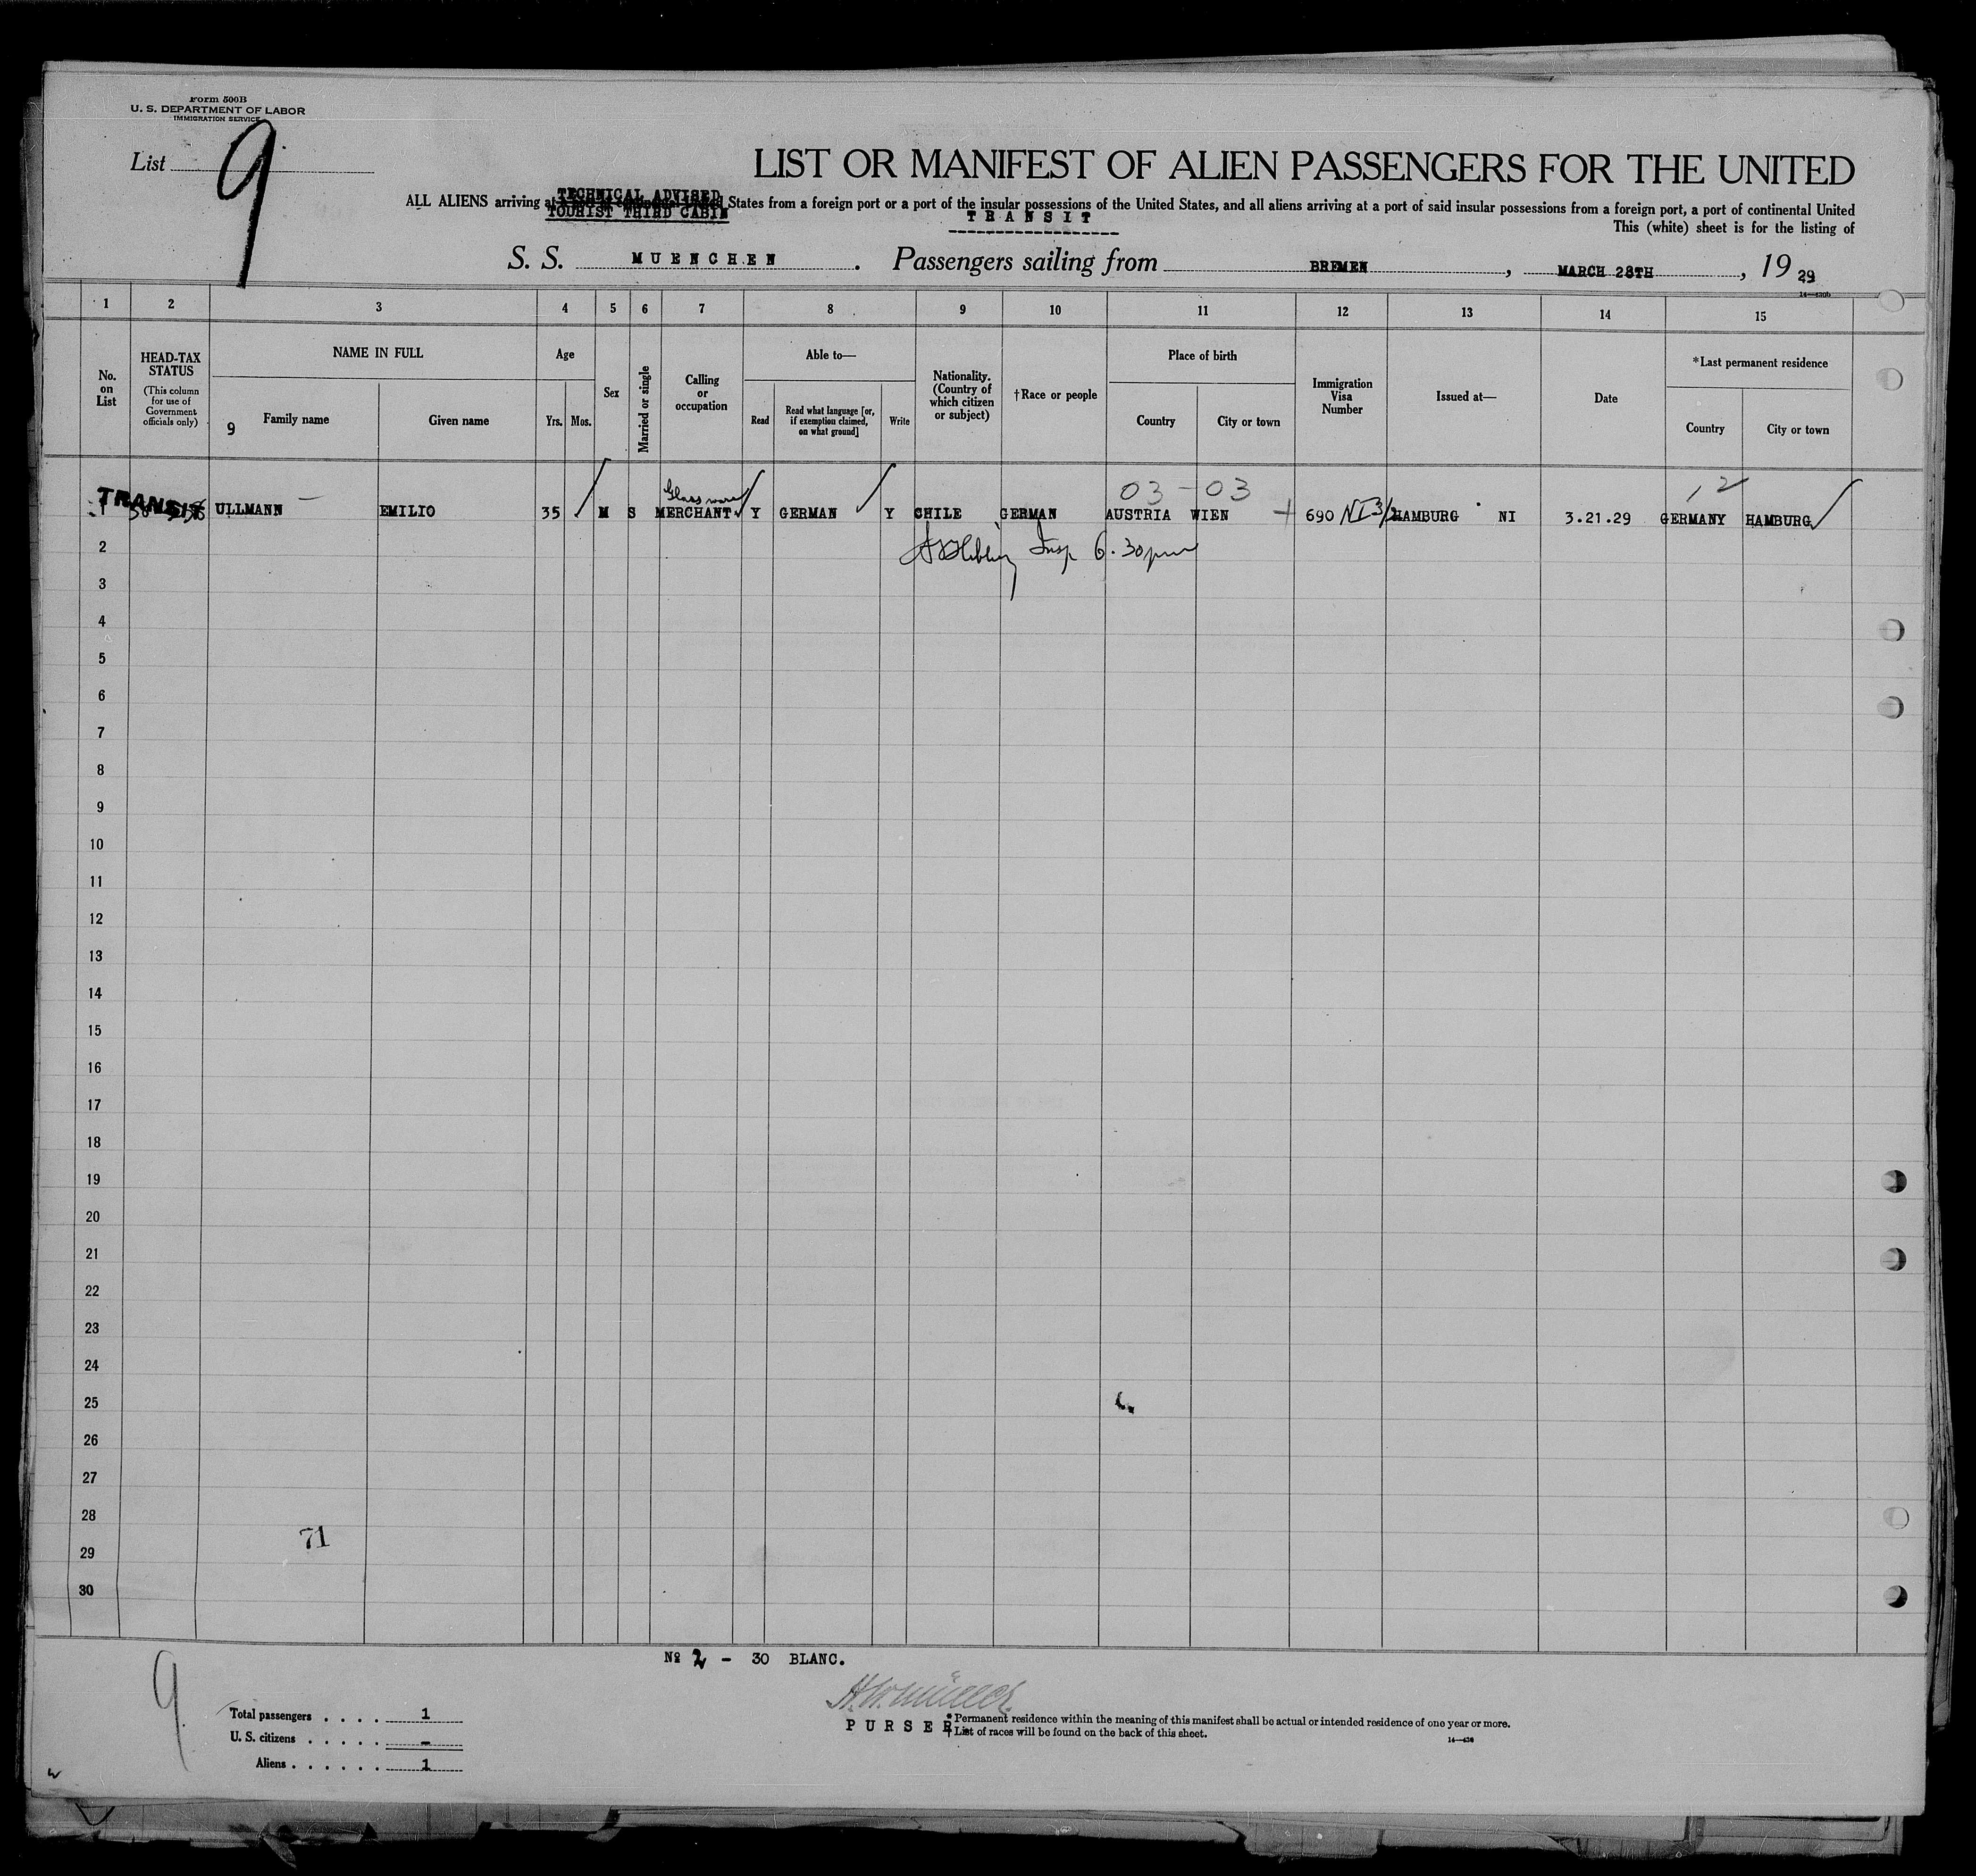 Form 500B
U. S. DEPARTMENT OF LABOR
IMMIGRATION SERVICE
List 9
LIST OR MANIFEST OF ALIEN PASSENGERS FOR THE UNITED
TECHNICAL ADVISED
TOURIST THIRD CABIN
ALL ALIENS arriving at a port of continental United States from a foreign port or a port of the insular possessions of the United States, and all aliens arriving at a port of said insular possessions from a foreign port, a port of continental United
TRANSIT
This (white) sheet is for the listing of
S. S. MUENCHEN. Passengers sailing from BREMEN, MARCH 28TH, 1929
1 2 3 4 5 6 7 8 9 10 11 12 13 14 15
No. on List
HEAD-TAX STATUS
(This column for use of Government officials only)
NAME IN FULL
9 Family name
Given name
Age
Yrs. Mos.
Sex
Married or single
Calling or occupation
Able to—
Read
Read what language [or, if exemption claimed, on what ground]
Write
Nationality. (Country of which citizen or subject)
†Race or people
Place of birth
Country
City or town
Immigration Visa Number
Issued at—
Date
*Last permanent residence
Country
City or town
Glassware 03 - 03 12
1 TRANSIT ULLMANN EMILIO 35 M S MERCHANT Y GERMAN Y CHILE GERMAN AUSTRIA WIEN 690 HAMBURG NI 3.21.29 GERMANY HAMBURG
Insp 6.30pm
2
3
4
5
6
7
8
9
10
11
12
13
14
15
16
17
18
19
20
21
22
23
24
25
26
27
28
71
29
30
№ 2 - 30 BLANC.
9
Total passengers . . . . 1
U. S. citizens . . . . . -
Aliens . . . . . . 1
PURSER
* Permanent residence within the meaning of this manifest shall be actual or intended residence of one year or more.
† List of races will be found on the back of this sheet.
14—430